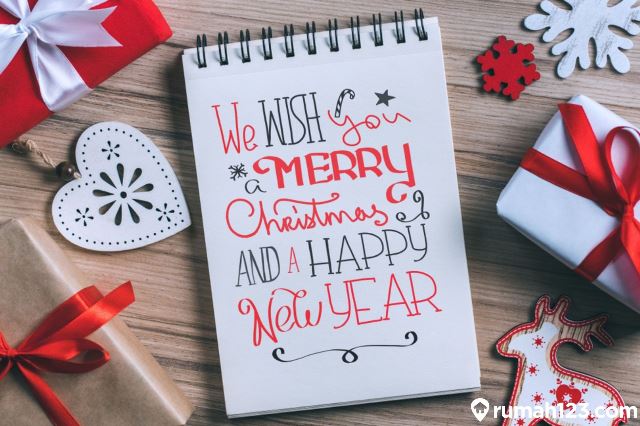 We WISH You
a MERRY
Christmas
AND A HAPPY
New YEAR
rumah123.com